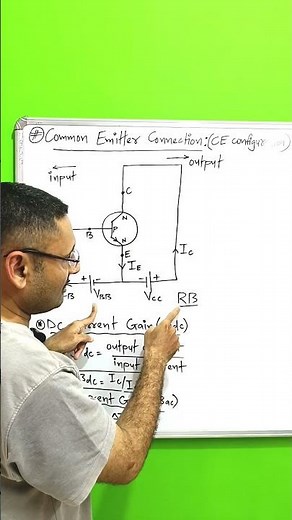 (*) Common Emitter Connection:(CE configur
output
input
C
N
P
B
N
I_C
E
I_E
+ - - +
B V_BB V_CC RB
(*) DC Current Gain
dc)
dc = output
input
dc = I_C/I
ac)